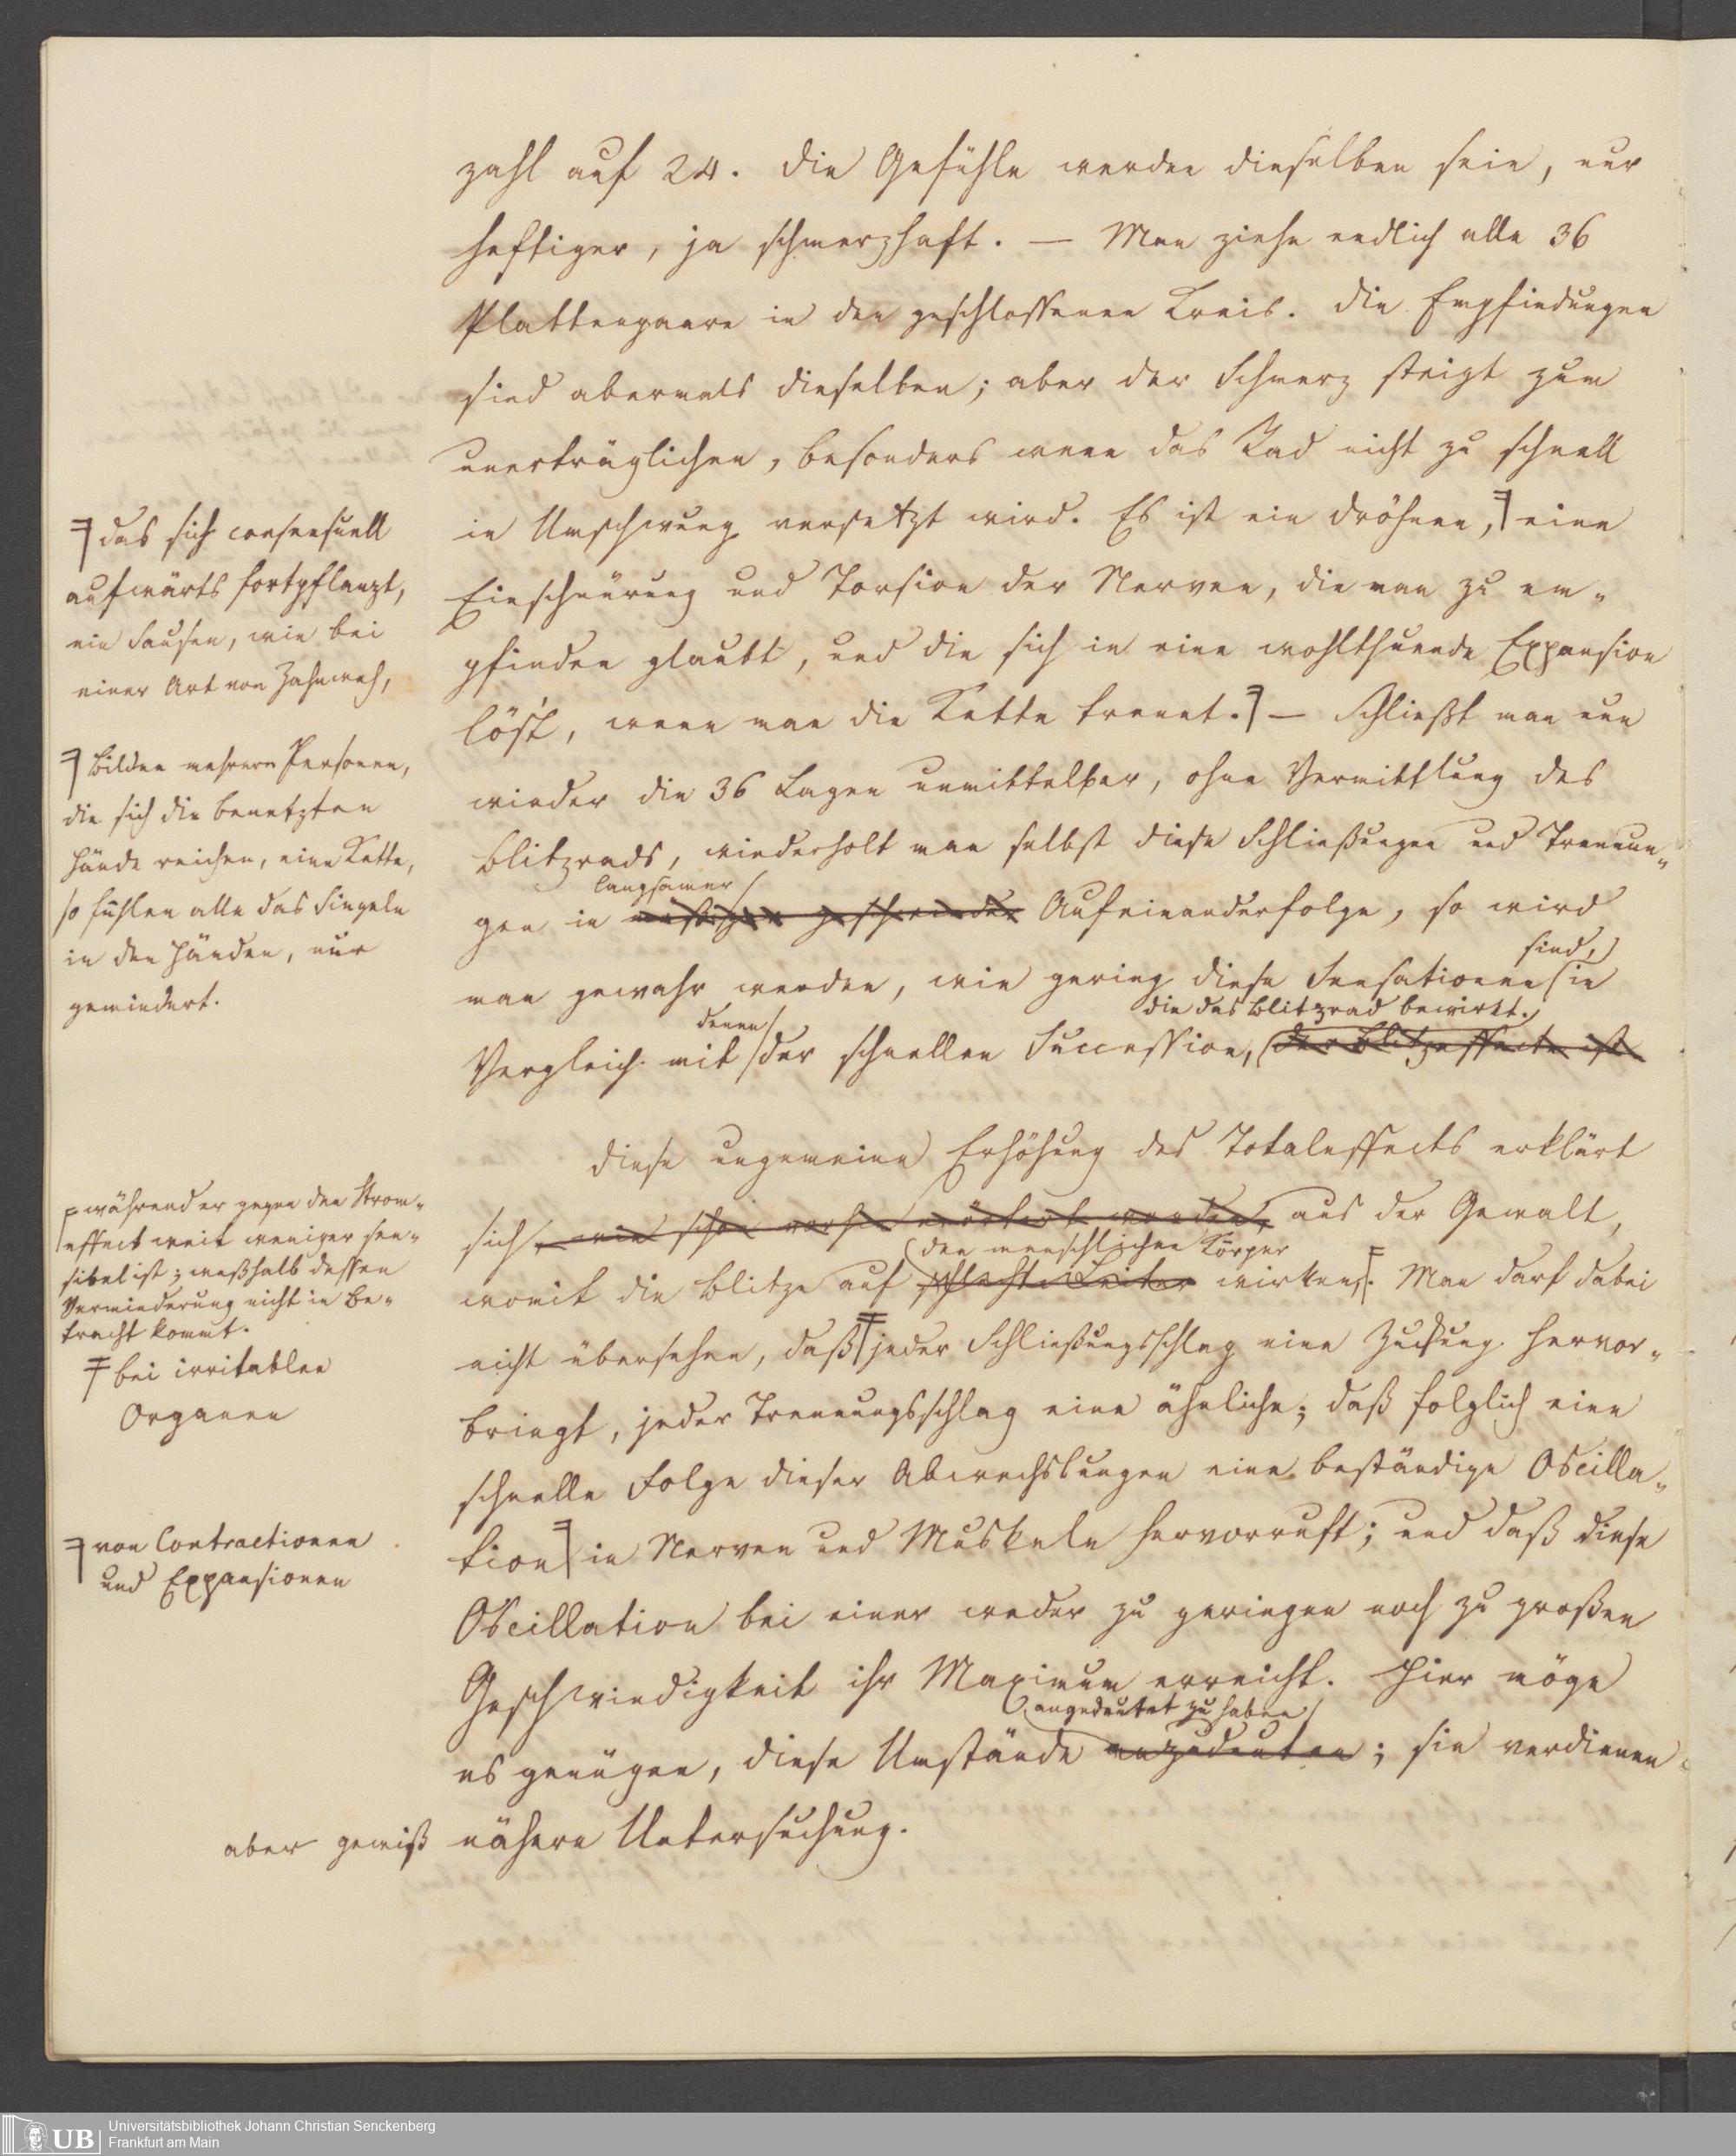 zahl auf 24. Die Gefühle werden dieselben sein, nur
heftiger, ja schmerzhaft. — Man ziehe endlich alle 36
Plattenpaare in den geschlossenen Kreis. Die Empfindungen
sind abermals dieselben; aber der Schmerz steigt zum
unerträglichen, besonders wenn das Rad nicht zu schnell
in Umschwung versetzt wird. Es ist ein Dröhnen, eine
Einschnürung und Torsion der Nerven, die man zu em-
pfinden glaubt, und die sich in eine wohlthuende Expansion
lös't, wenn man die Kette trennt. — Schließt man nun
wieder die 36 Lagen unmittelbar, ohne Vermittlung des
Blitzrads, wiederholt man selbst diese Schließungen und Trennun-
langsamer
gen in mäßiger geschwinder Aufeinanderfolge, so wird
sind,
man gewahr werden, wie gering diese Sensationen in
denen die das Blitzrad bewirkt.
Vergleich mit der schnellen Succession, der Blitzeffecte ist
Diese ungemeine Erhöhung des Totaleffects erklärt
sich, wie schon vorhin erörtert worden, aus der Gewalt,
den menschlichen Körper
womit die Blitze auf schlechte Leiter wirken. Man darf dabei
nicht übersehen, daß jeder Schließungsschlag eine Zuckung hervor-
bringt, jeder Trennungsschlag eine ähnliche; daß folglich eine
schnelle Folge dieser Abwechslungen eine beständige Oscilla-
tion in Nerven und Muskeln hervorruft; und daß diese
Oscillation bei einer weder zu geringen noch zu großen
Geschwindigkeit ihr Maximum erreicht. Hier möge
angedeutet zu haben
es genügen, diese Umstände anzudeuten; sie verdienen
aber gewiß nähere Untersuchung.
das sich consensuell
aufwärts fortpflanzt,
ein Sausen, wie bei
einer Art von Zahnweh,
Bilden mehrere Personen,
die sich die benetzten
Hände reichen, eine Kette,
so fühlen alle das Singeln
in den Händen, nur
gemindert.
während er gegen den Strom-
effect weit weniger sen-
sibel ist; weßhalb dessen
Verminderung nicht in Be-
tracht kommt.
bei irritablen
Organen
von Contractionen
und Expansionen
UB Universitätsbibliothek Johann Christian Senckenberg
Frankfurt am Main